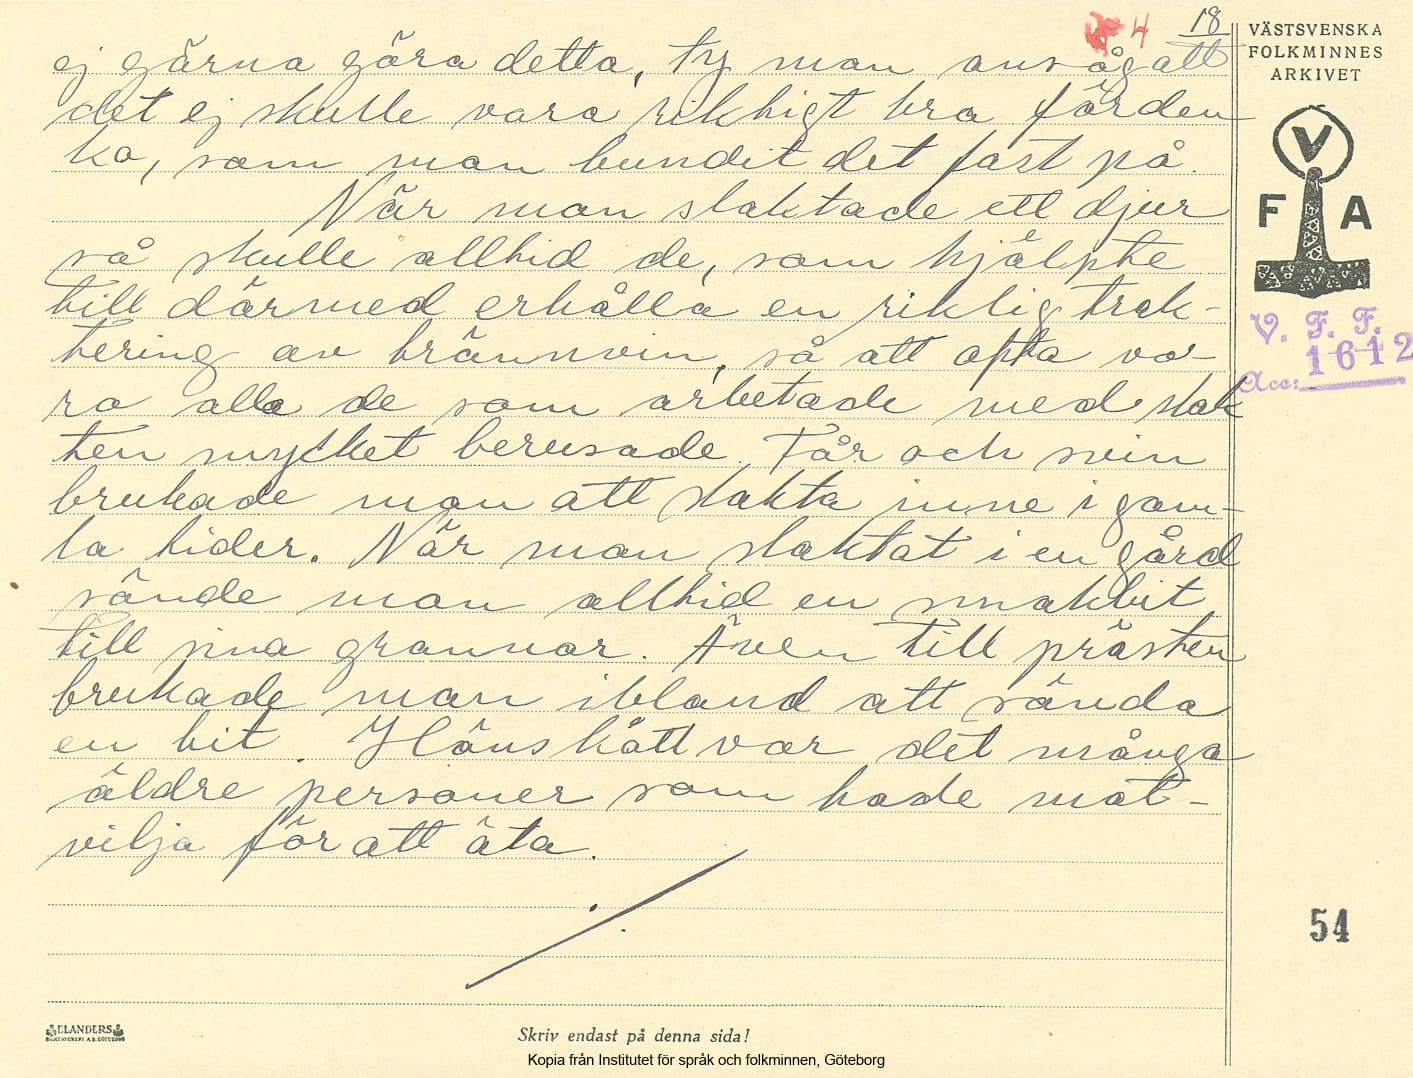 4 18
VÄSTSVENSKA
FOLKMINNES
ARKIVET
ej gärna göra detta, ty man ansåg att
det ej skulle vara riktigt bra för den
ko, som man bundit det fast på.
När man slaktade ett djur
så skulle alltid de, som hjälpte
till därmed erhålla en riklig trak-
tering av brännvin, så att ofta vo-
ro alla de som arbetade med slak
ten mycket berusade. Får och svin
brukade man att slakta inne i gam-
la tider. När man slaktat i en gård
sände man alltid en smakbit
till sina grannar. Även till prästen
brukade man ibland att sända
en bit. Hönskött var det många
äldre personer som hade mot-
vilja för att äta.
V
F A
V. F. F.
Acc: 1612
54
ELANDERS
BOKTRYCKERI A.B. GÖTEBORG
Skriv endast på denna sida!
Kopia från Institutet för språk och folkminnen, Göteborg